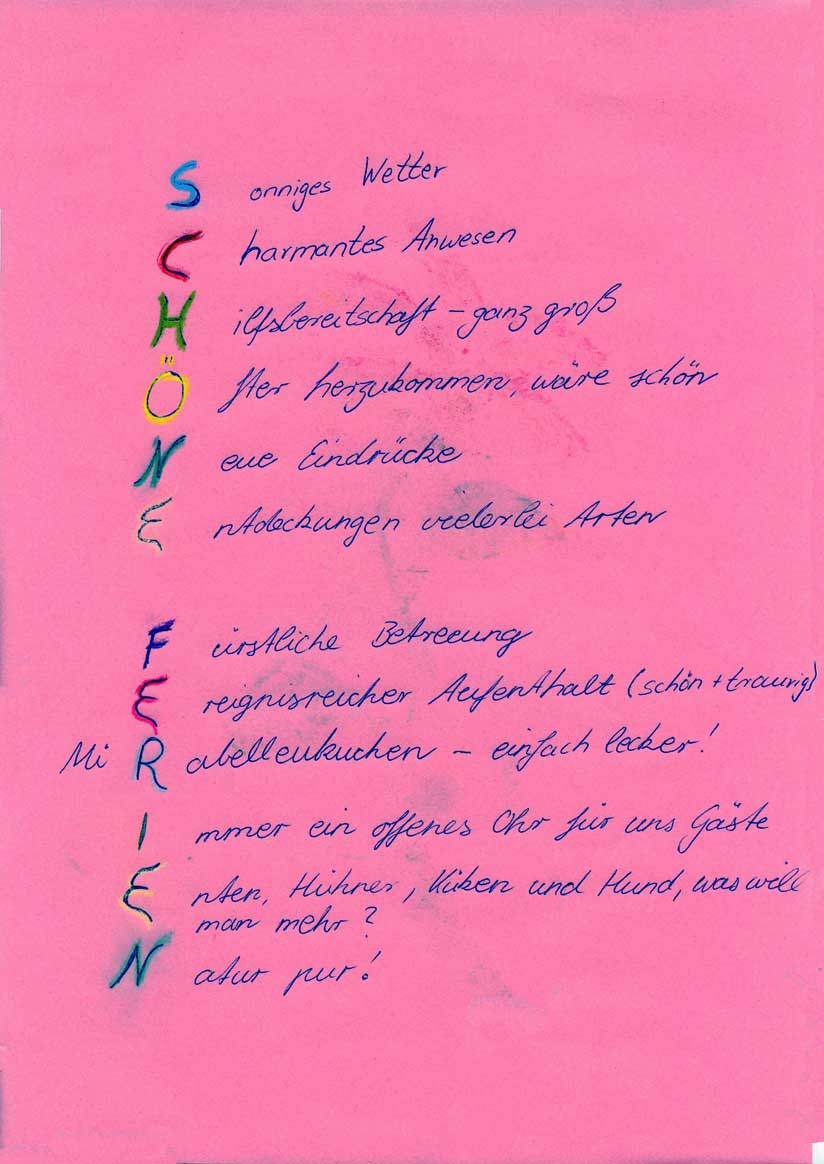 Sonniges Wetter
Charmantes Anwesen
Hilfsbereitschaft – ganz groß
Öfter herzukommen, wäre schön
Neue Eindrücke
Entdeckungen vielerlei Arten
Fürstliche Betreuung
Ereignisreicher Aufenthalt (schön + traurig)
MiRabellenkuchen – einfach lecker!
Immer ein offenes Ohr für uns Gäste
Enten, Hühner, Küken und Hund, was will
man mehr?
Natur pur!